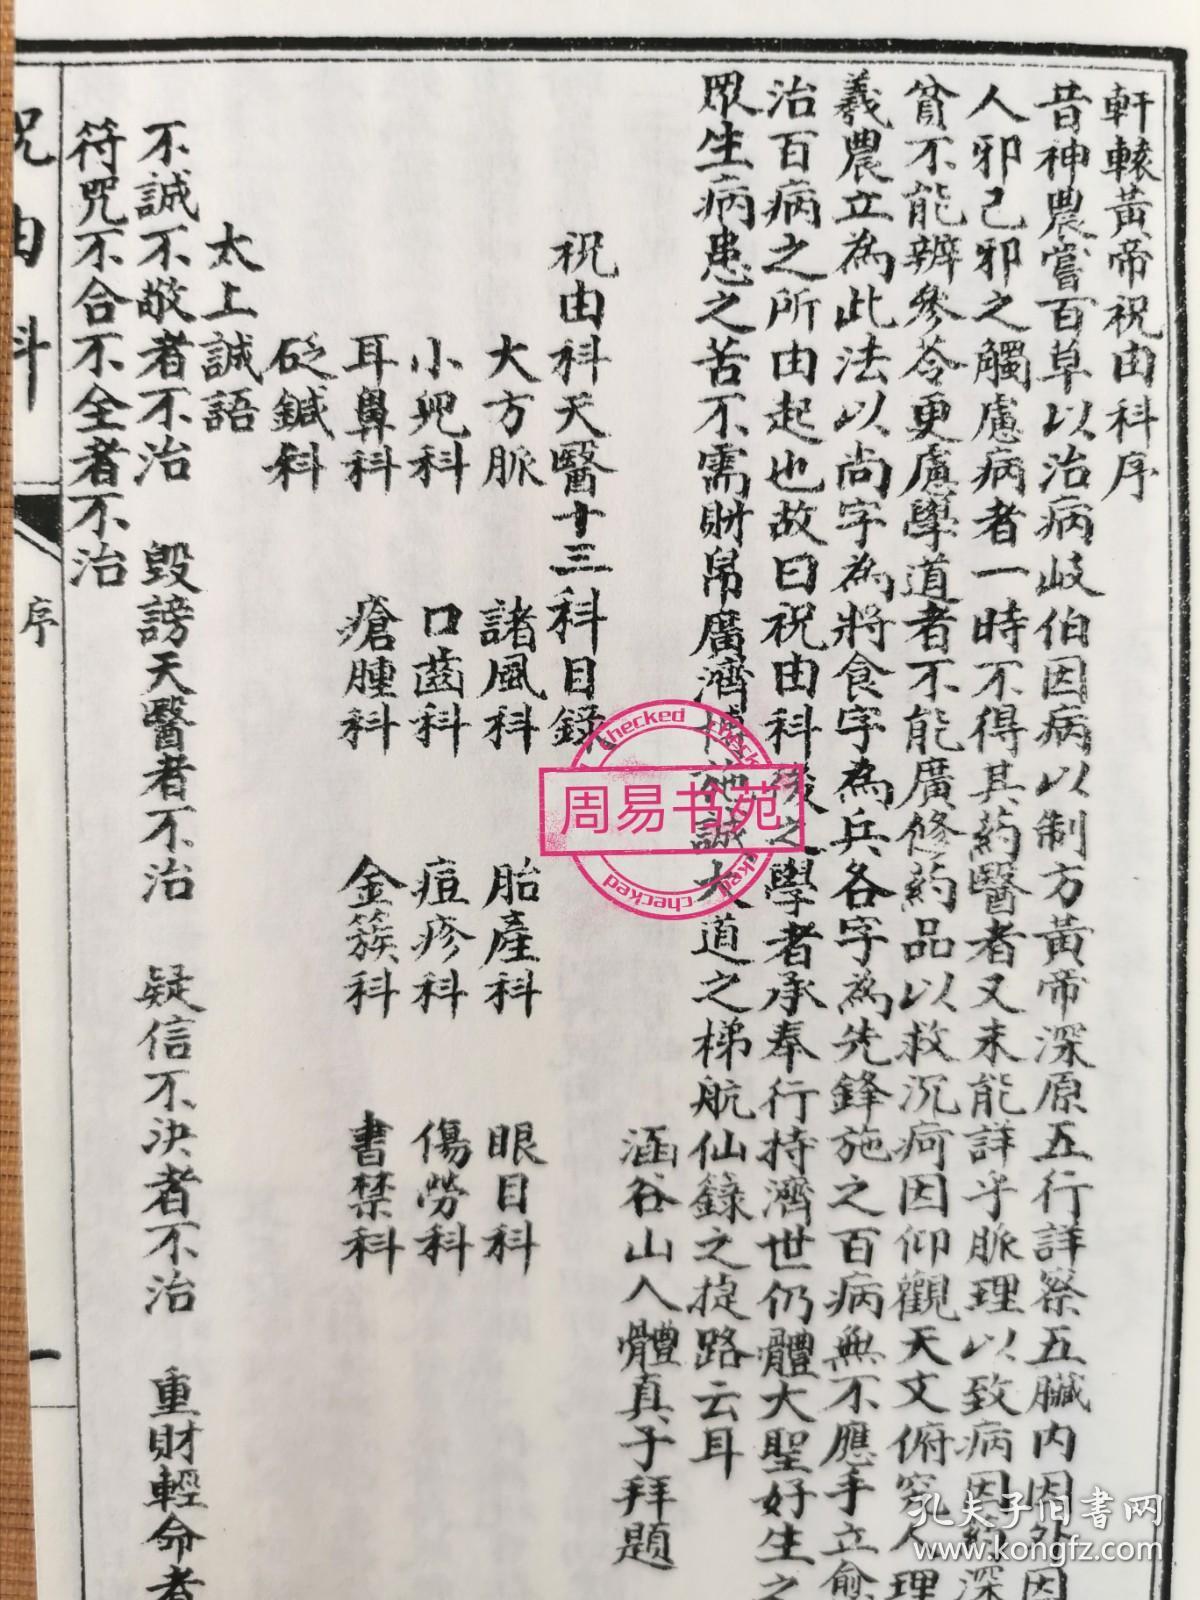 軒轅黃帝祝由科序
昔神農嘗百草以治病岐伯因病以制方黃帝深原五行詳察五臟內因外因
人邪己邪之觸慮病者一時不得其药醫者又未能詳乎脈理以致病因药深
貧不能辨參苓更慮學道者不能廣修药品以救沉疴因仰觀天文俯究人理
羲農立為此法以尚字為將食字為兵各字為先鋒施之百病無不應手立愈
治百病之所由起也故曰祝由科後之學者承奉行持濟世仍體大聖好生之
眾生病患之苦不需財帛廣濟 誠大道之梯航仙籙之捷路云耳
涵谷山人體真子拜題
祝由科天醫十三科目錄
大方脈 諸風科 胎產科 眼目科
小兒科 口齒科 痘疹科 傷勞科
耳鼻科 瘡腫科 金簇科 書禁科
砭鍼科
太上誠語
不誠不敬者不治 毀謗天醫者不治 疑信不決者不治 重財輕命者
符咒不合不全者不治
祝由科
序
一
checked
checked
checked
checked
周易书苑
孔夫子旧书网
www.kongfz.com